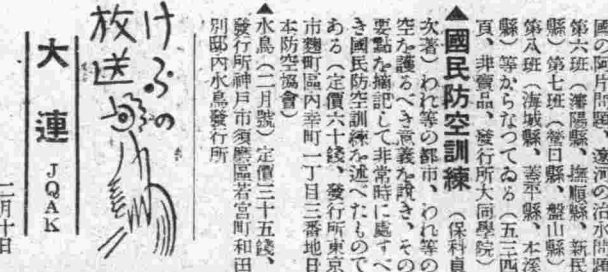 國の阿片問題、遼河の治水問題
第六班（瀋陽縣、撫順縣、新民
縣）第七班（營口縣、盤山縣）
第八班（海城縣、蓋平縣、本溪
縣）等からなつてゐる（五三四
頁、非賣品、發行所大同學院）
▲國民防空訓練（保科貞
次著）われ等の都市、われ等の
空を護るべき意義を說き、その
要點を摘記して非常時に處すべ
き國民防空訓練を述べたもので
ある（定價六十錢、發行所東京
市麴町區內幸町一丁目三番地日
本防空協會）
▲水鳥（二月號）定價三十五錢、
發行所神戶市須磨區若宮町和田
別邸內水鳥發行所
けふの
放送
大連
JQAK
二月十日